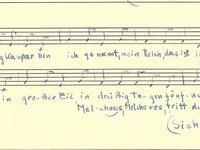 gKaspar bin ich genannt, mein Reich, das ist i
in gro-ßer Eil in dreißig ta-gen fünf-
Mel-choys, Melchores, tritt du
(Sieh